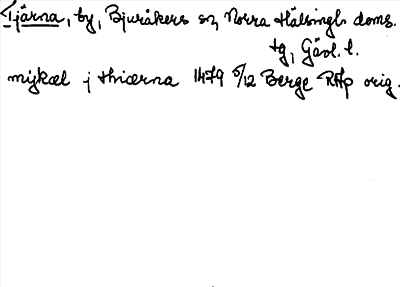 Tjärna, by, Bjuråkers sn, Norra Hälsingl. doms.
tg, Gävl. l.
mijkæl j thiærna 1479 5/12 Berge RAp orig.